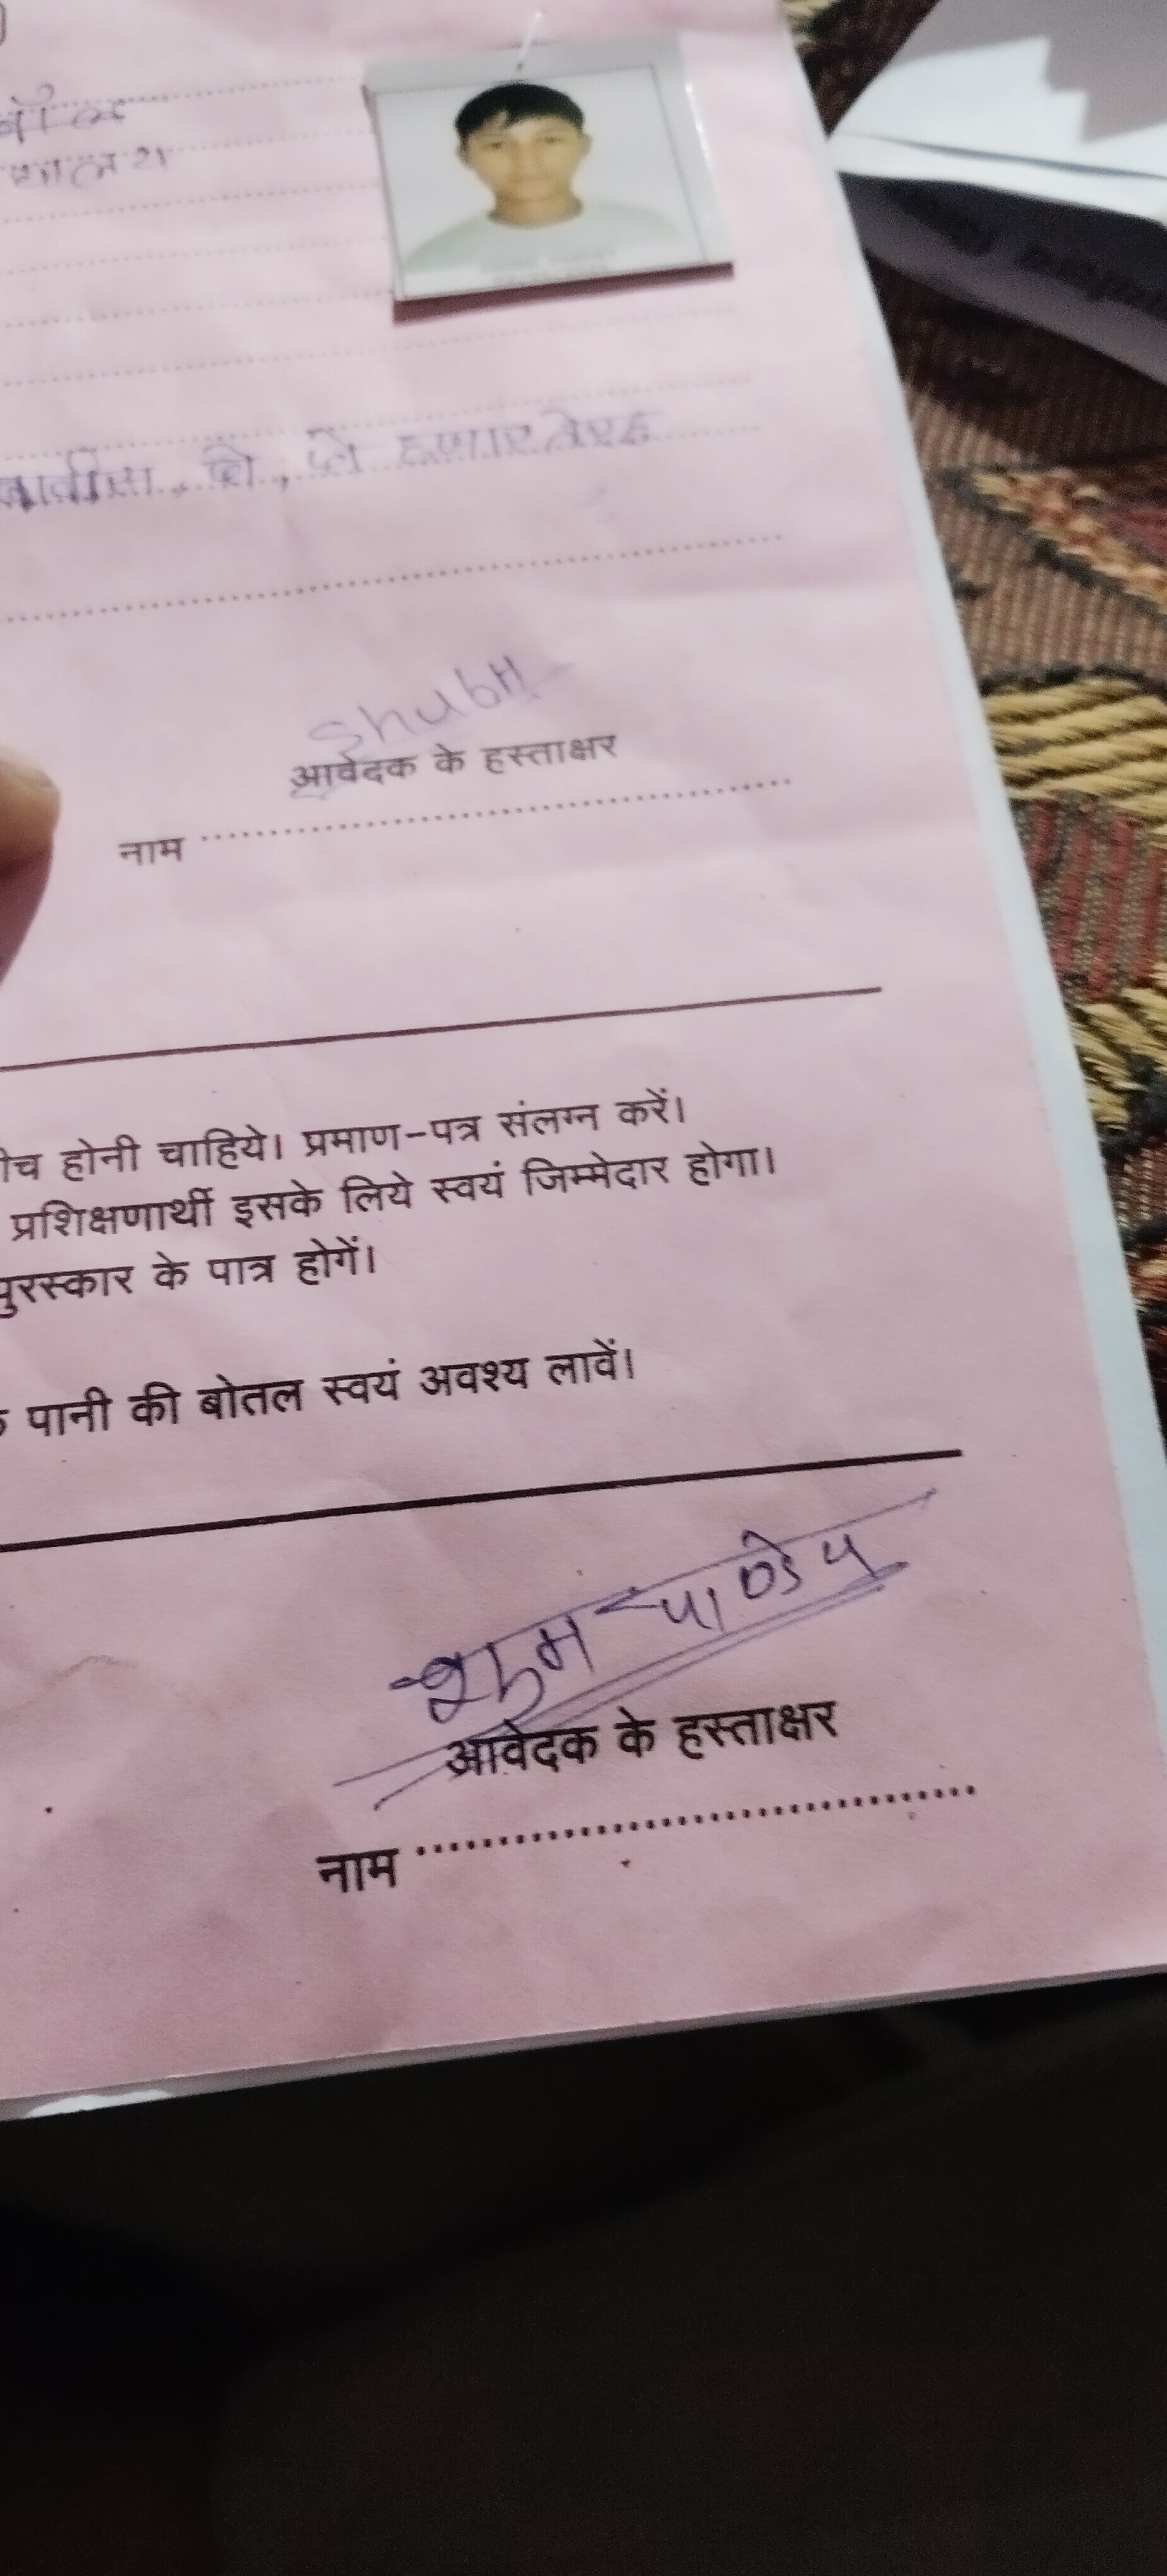 बाईस, दो, दो हजार तेरह
Shubh
आवेदक के हस्ताक्षर
नाम
होनी चाहिये। प्रमाण-पत्र संलग्न करें।
प्रशिक्षणार्थी इसके लिये स्वयं जिम्मेदार होगा।
पुरस्कार के पात्र होगें।
पानी की बोतल स्वयं अवश्य लावें।
शुभ पाण्डेय
आवेदक के हस्ताक्षर
नाम